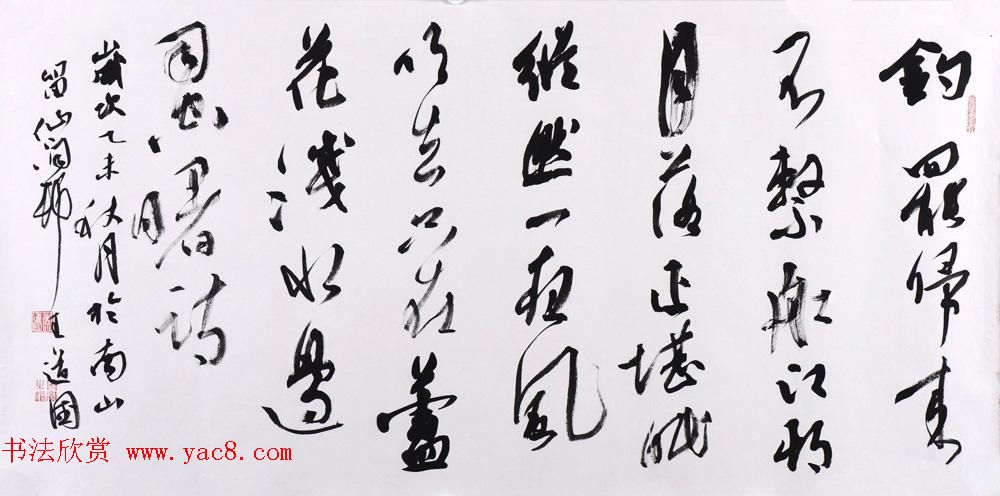 釣罷歸来
不繫船江邨
月落正堪眠
縱然一夜風
吹去只在蘆
花淺水邊
司空曙詩
歲次乙未秋月於南山
留仙 王道國
书法欣赏 www.yac8.com